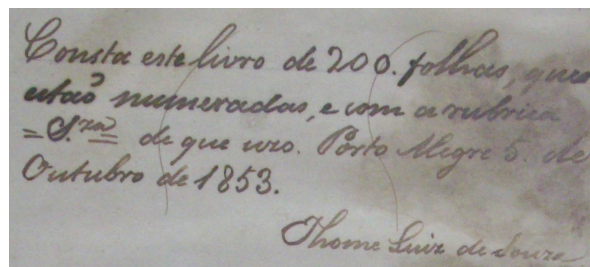 Consta este livro de 200. folhas, que
estaõ numeradas, e com a rubrica
= S.za = de que uso. Porto Alegre 5. de
Outubro de 1853.
Thome Luiz de Souza